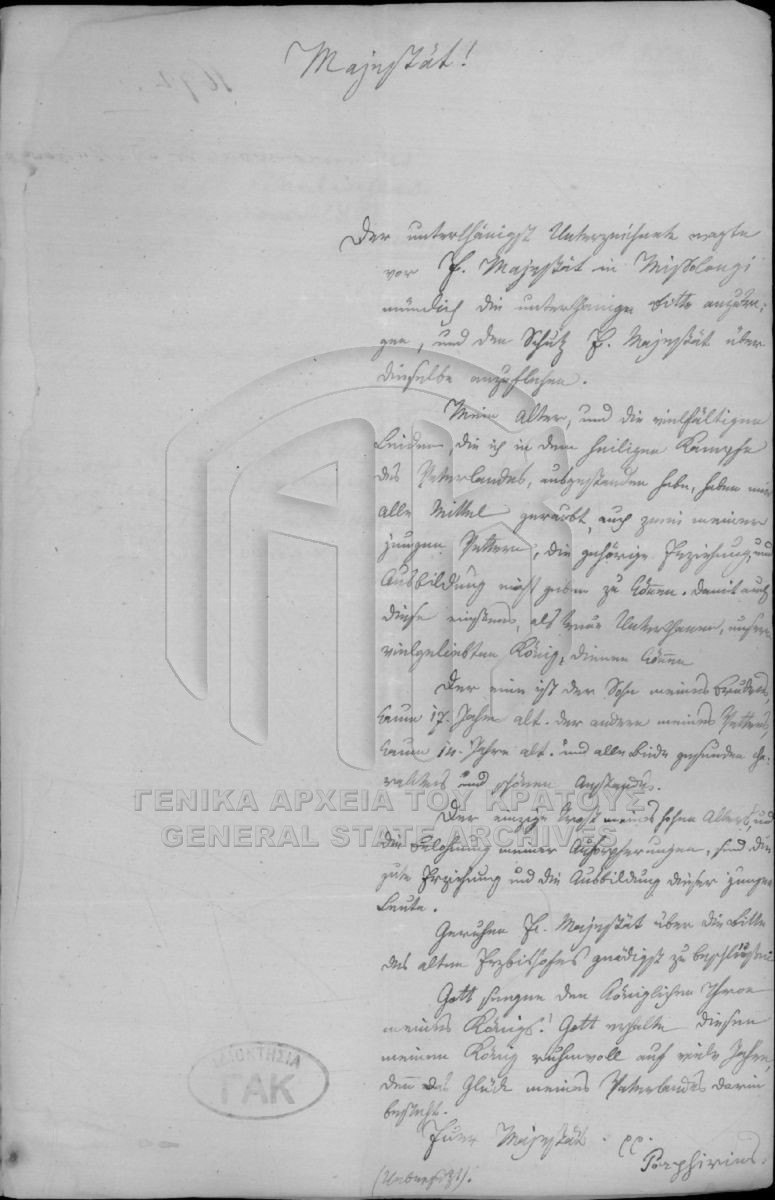 Majestät!
Der unterthänigst Unterzeichnete wagte
vor E. Majestät in Missolongi
mündlich die unterthänige Bitte anzubrin-
gen, und den Schutz E. Majestät über
dieselbe anzuflehen.
Mein Alter, und die vielfältigen
Leiden, die ich in dem heiligen Kampfe
des Vaterlandes, ausgestanden habe, haben mir
alle Mittel geraubt, auch zwei meiner
jungen Vettern, die gehörige Erziehung, und
Ausbildung nicht geben zu können. Damit auch
diese einstens, als treue Unterthanen, unserm
vielgeliebten König, dienen können
Der eine ist der Sohn meines Bruders,
kaum 17. Jahre alt. der andere meines Vetters,
kaum 14. Jahre alt. und alle beide gesunden Cha-
rakters und schönen Anstandes.
Der einzige Trost meines hohen Alters, und
die Belohnung meiner Aufopferungen, sind die
gute Erziehung und die Ausbildung dieser jungen
Leute.
Geruhen E. Majestät über die Bitte
des alten Erzbischofes gnädigst zu beschließen
Gott segne den königlichen Thron
meines Königs! Gott erhalte diesen
meinen König ruhmvoll auf viele Jahre,
denn das Glück meines Vaterlandes darin
besteht.
Euer Majestät. pp.
Porphirius.
ΓΕΝΙΚΑ ΑΡΧΕΙΑ ΤΟΥ ΚΡΑΤΟΥΣ
GENERAL STATE ARCHIVES
ΙΔΙΟΚΤΗΣΙΑ
ΓΑΚ